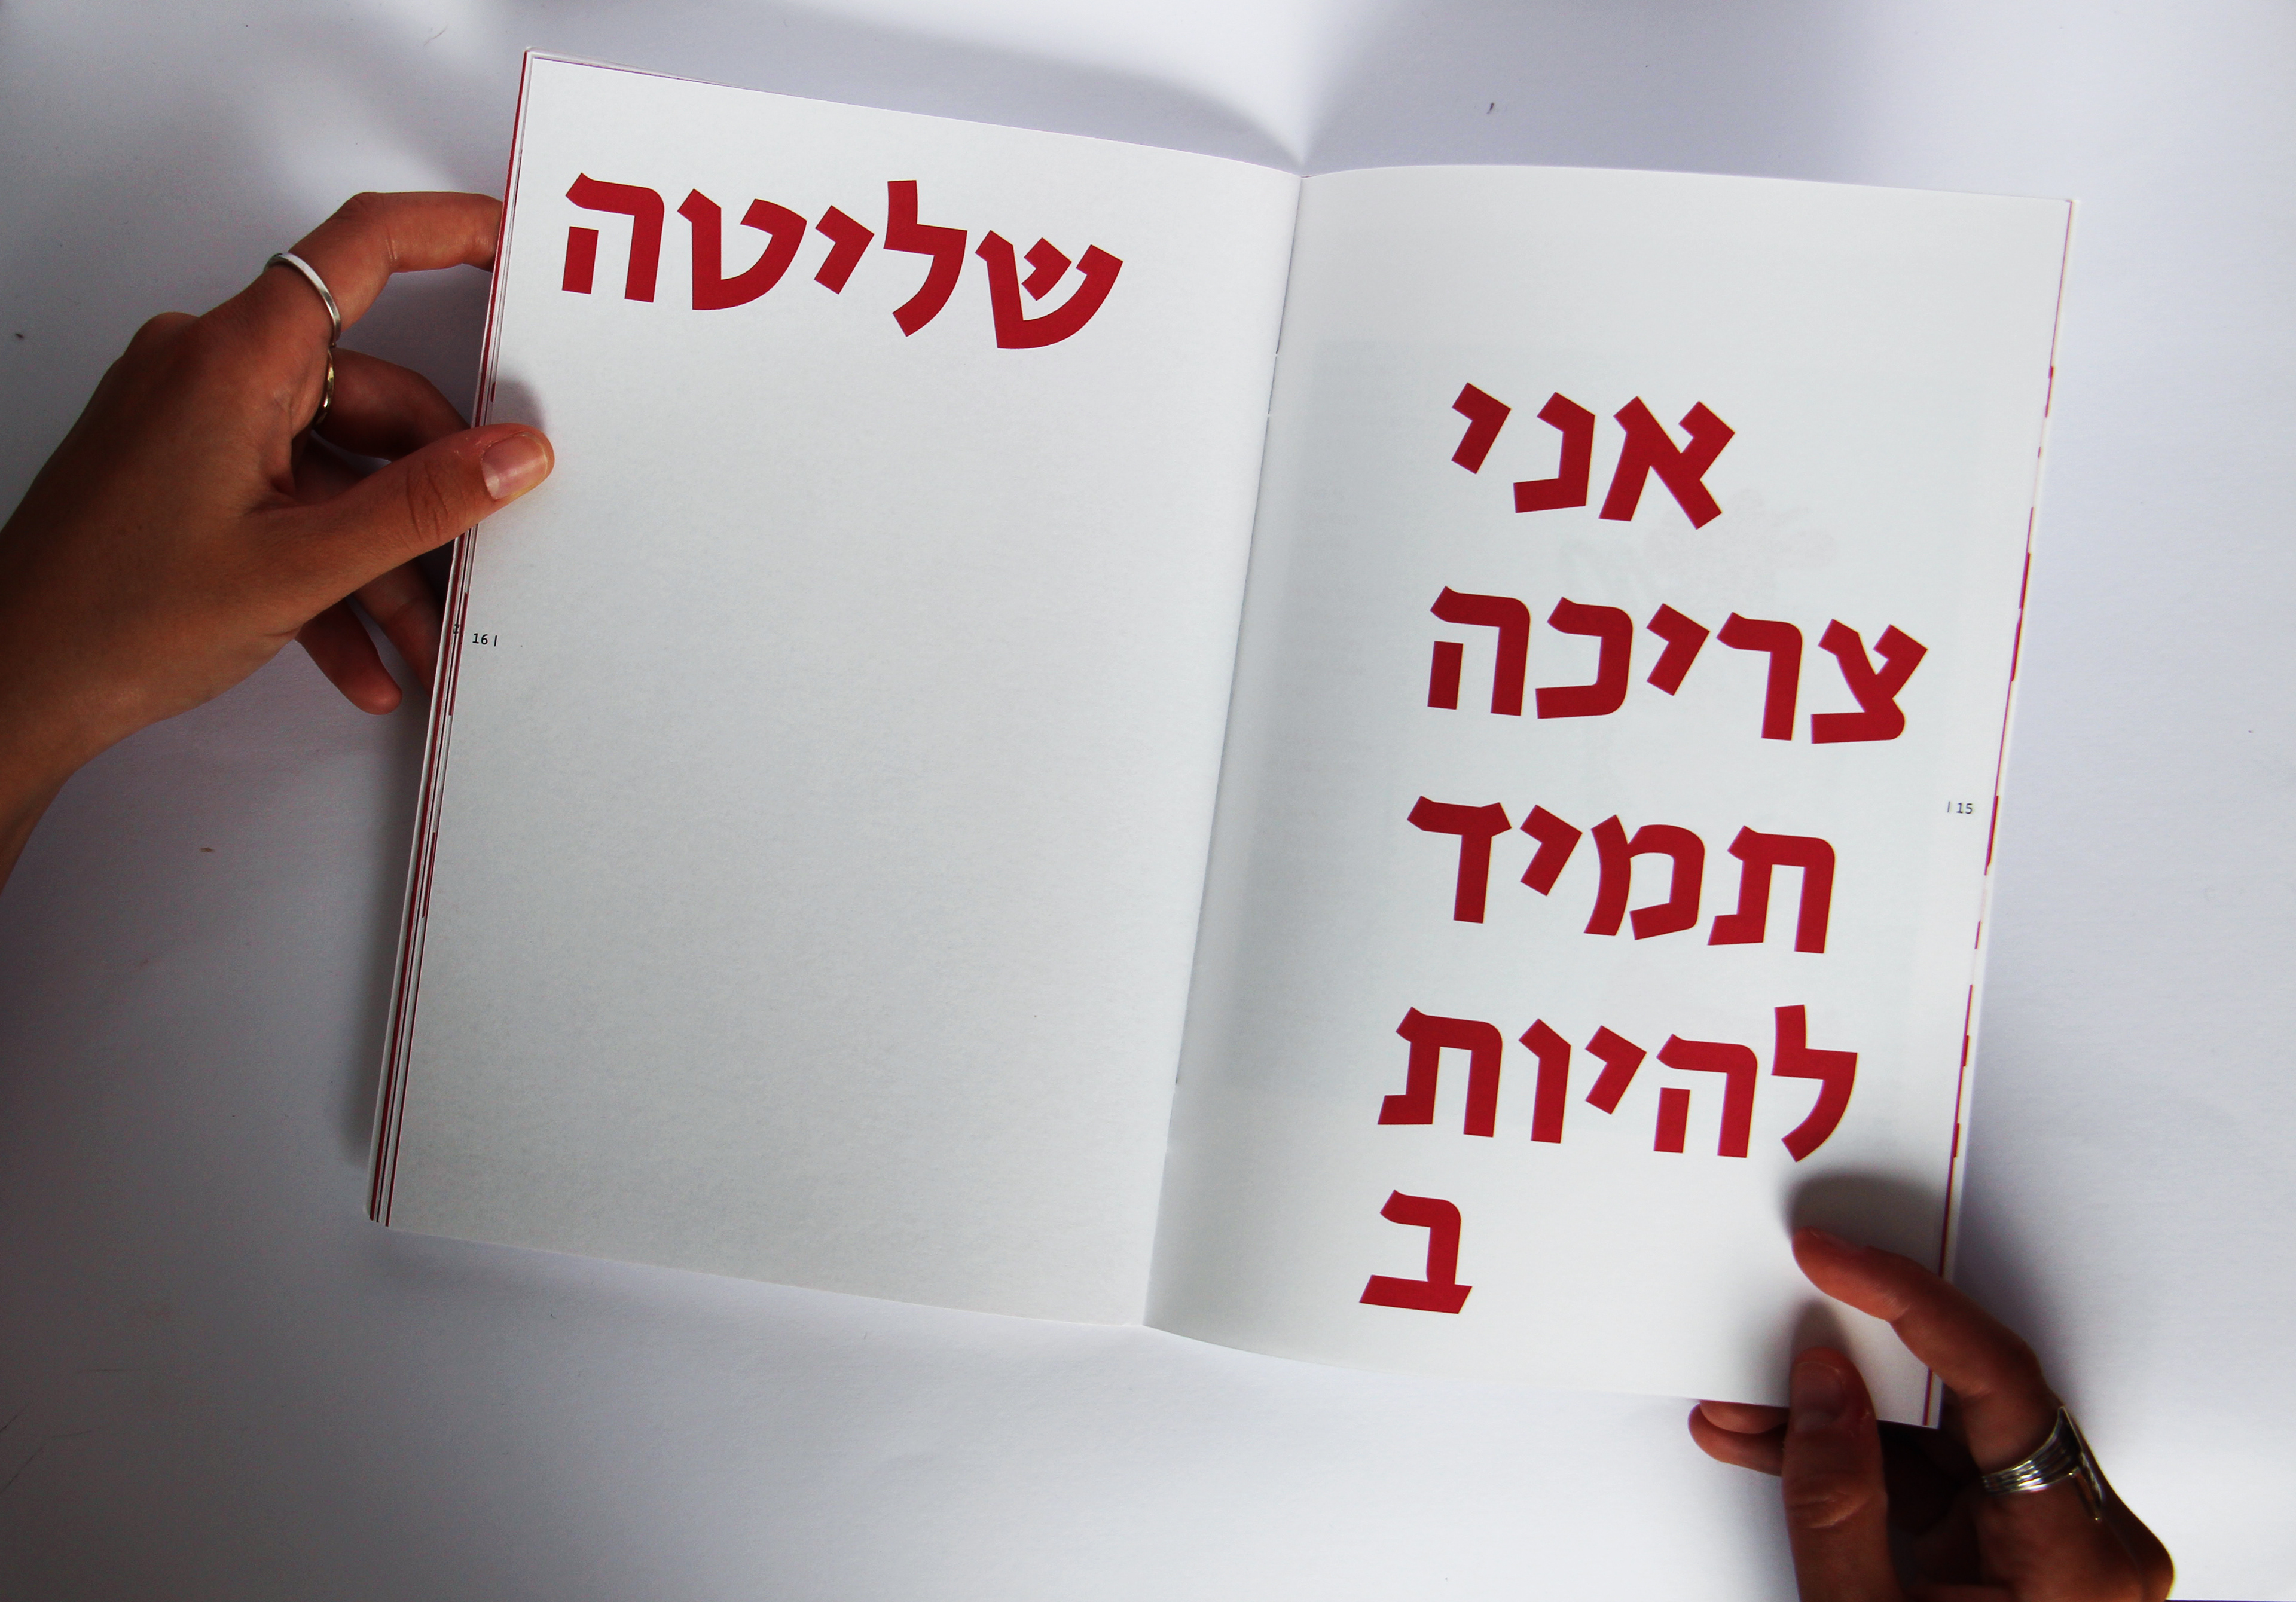 אני
צריכה
תמיד
להיות
ב
| 15
שליטה
16 |